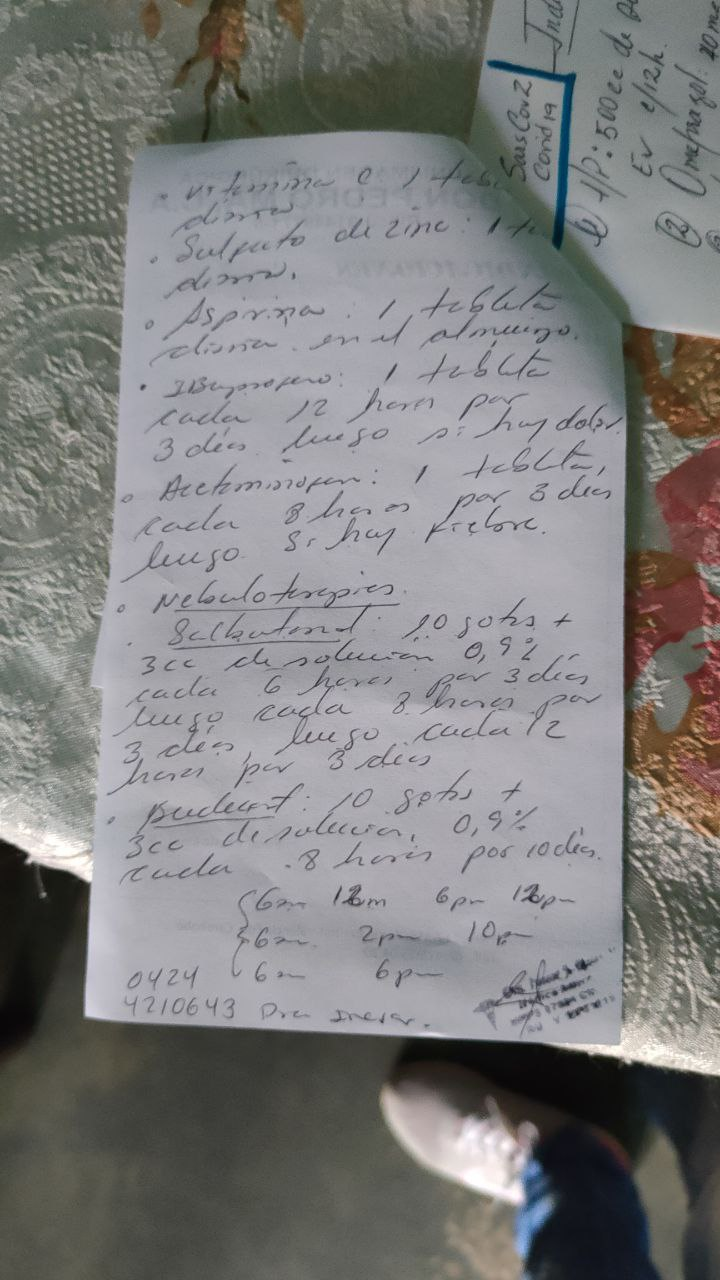 • Vitamina C 1 tab
diaria
• Sulfato de zinc: 1 ta
diaria.
• Aspirina: 1 tableta
diaria en el almuerzo.
• Ibuprofeno: 1 tableta
cada 12 horas por
3 días luego si hay dolor.
• Acetominofen: 1 tableta,
cada 8 horas por 3 días
luego si hay fiebre.
• Nebuloterapias.
• Salbutamol: 10 gotas +
3cc de solución 0,9%
cada 6 horas por 3 días
luego cada 8 horas por
3 días, luego cada 12
horas por 3 días
• 10 gotas +
3cc de solución, 0,9%
cada 8 horas por 10 días.
6am 12m 6pm 12pm
6am 2pm 10pm
6am 6pm
0424
4210643 Dra
SarsCov2
Covid 19
① H/P: 500cc de
EV c/12h.
② Omeprazol:
DON PEDRO